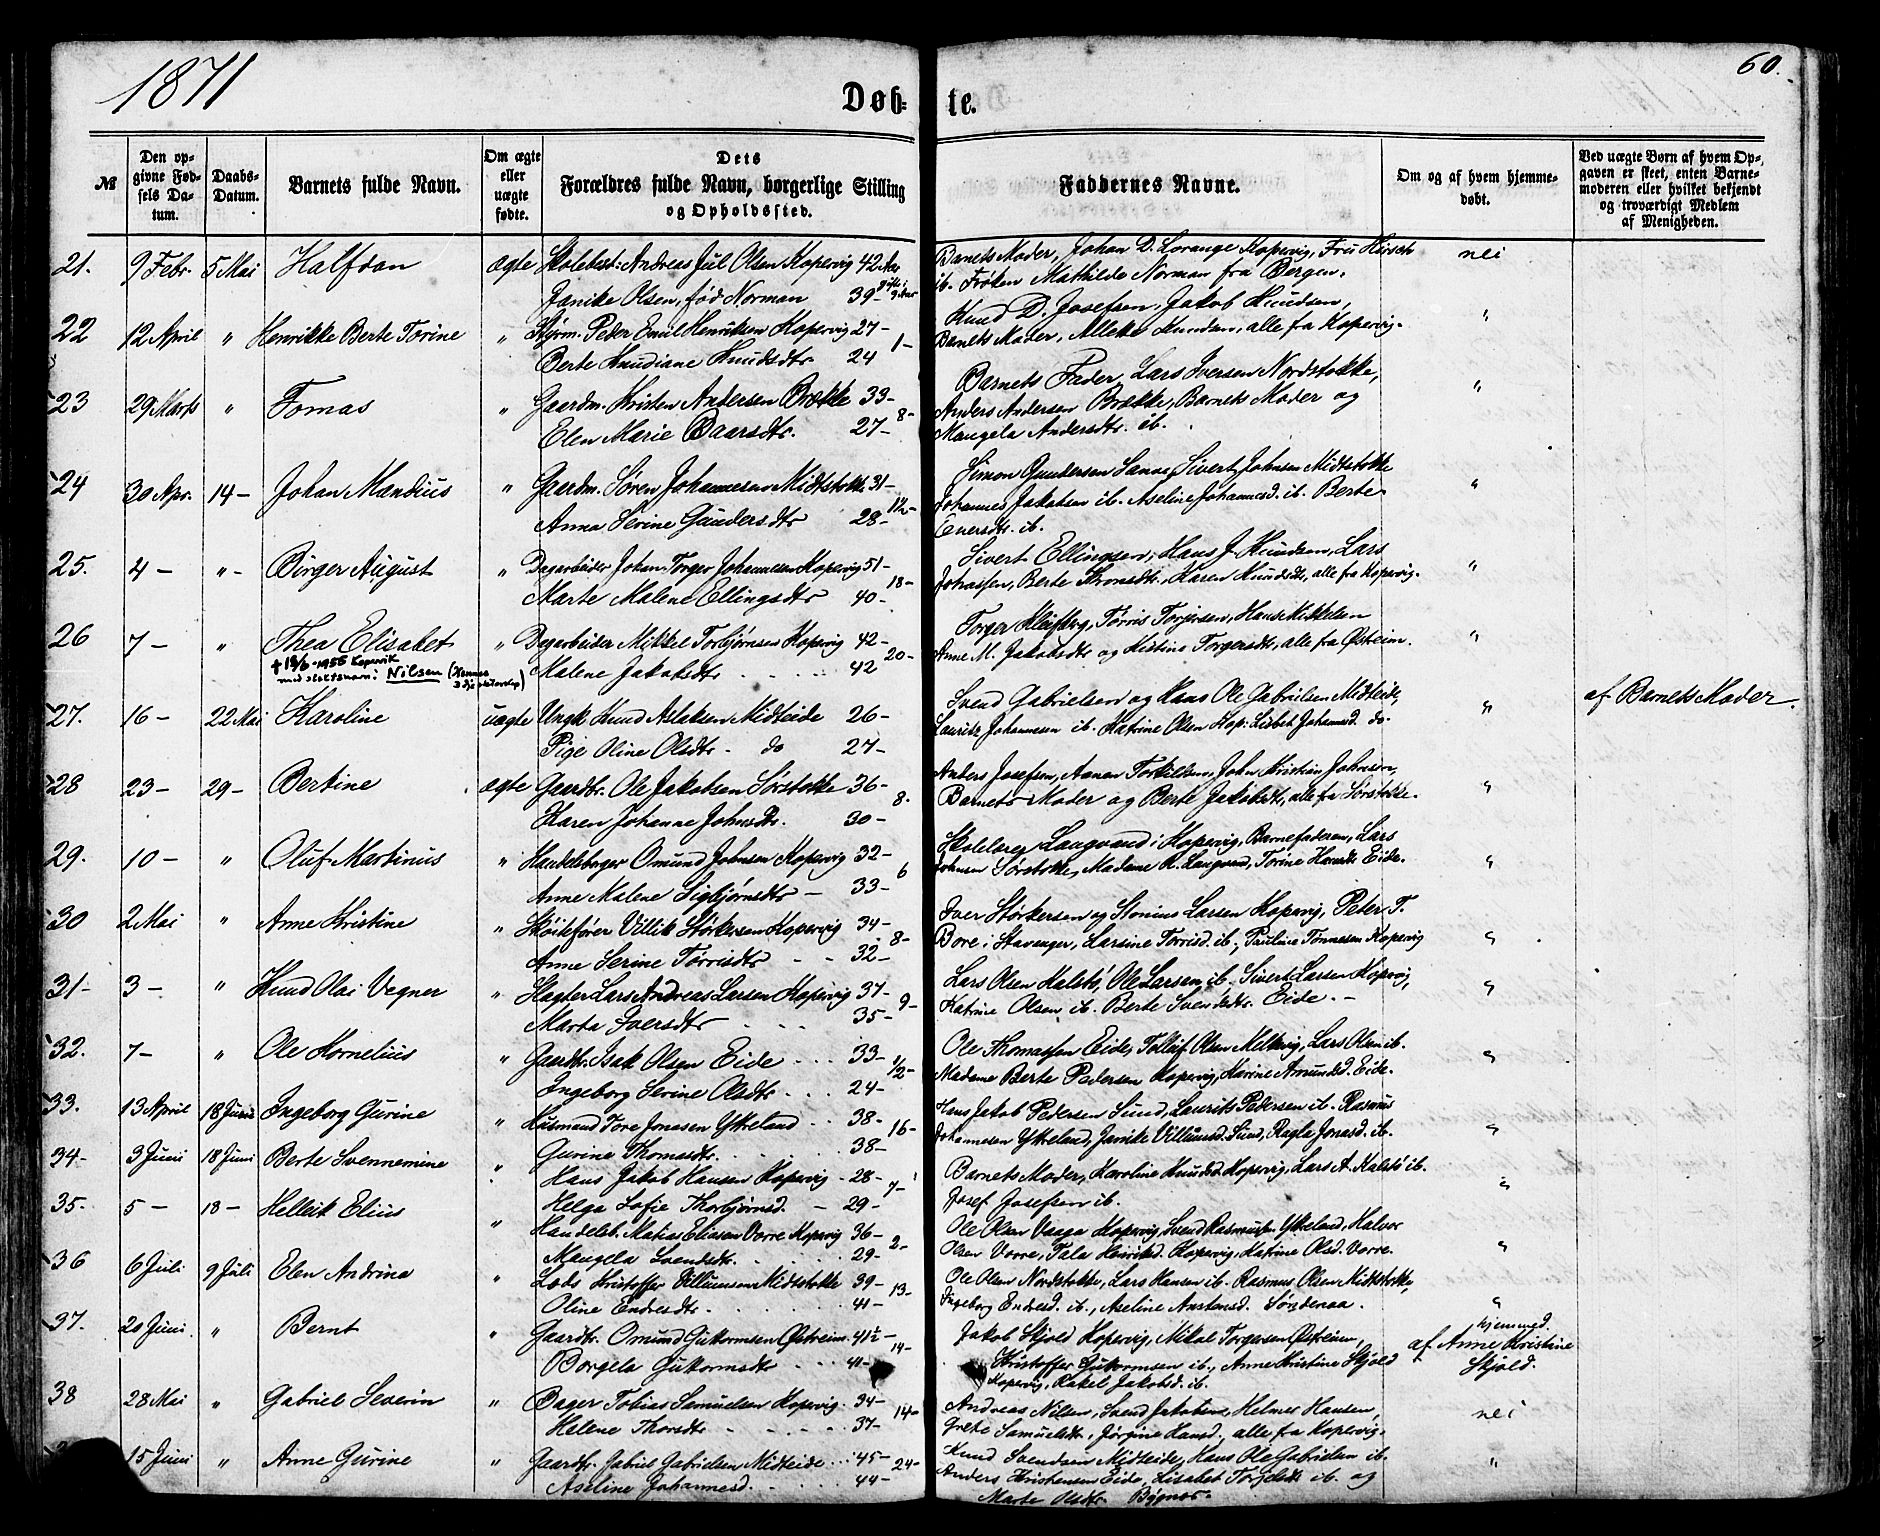 1871
60.
Døb- te.
№
Den opgivne Fødsels Datum.
Daabs-Datum.
Barnets fulde Navn.
Om ægte eller uægte fødte.
Dets Forældres fulde Navn, borgerlige Stilling og Opholdssted.
Faddernes Navne.
Om og af hvem hjemmedøbt.
Ved uægte Børn af hvem Opgaven er skeet, enten Barnemoderen eller hvilket bekjendt og troværdigt Medlem af Menigheden.
21. 9 Febr. 5 Mai Halfdan ægte Skolebest: Andreas Jul Olsen Kopervig 42 Aar Barnets Moder, Johan D. Lorange Kopervig, Fru Hirsch nei
Janike Olsen, fød Norman 39- ib. Frøken Mathilde Norman fra Bergen.
22 12 April " Henrikke Berte Torine " Styrm. Peder Emil Henriksen Kopervig 27- 1- Knud D. Josefsen, Jakob Knudsen, "
Berte Knudiane Knudsdtr 24 Barnets Moder, Allekte Knudsen, alle fra Kopervig.
23 29 Marts " Tomas " Gaardm. Kristen Andersen Brække 33- 8- Barnets Fader, Lars Iversen Nordstokke, "
Elen Marie Baarsdtr. 27- Anders Andersen Brække, Barnets Moder og
Maugela Andersdtr. ib.
24 30 Apr. 14- Johan Mandius " Gaardm. Søren Johannesen Midtstokke 31- 1½- Simon Gundersen Sanne, Sivert Johnsen Midtstokke "
Anna Serine Gundersdtr 28- Johannes Jakobsen ib. Aseline Johannesd. ib. Berte
Enersdtr. ib.
25. 4- "- Birger August " Dagarbeider Johan Torger Johannesen Kopervig 51- 18- Sivert Ellingsen, Hans J. Knudsen, Lars "
Marte Malene Ellingsdtr 40- Johassen, Berte Thronsdtr, Karen Knudsdtr, alle fra Kopervig.
26 7- " Thea Elisabet " Dagarbeider Mikkel Torbjørnsen Kopervig 42- 20- Torger Kleifberg, Tørris Torgersen, Hans Mikkelsen "
† 13/6-1955 Kopervik
med slektsnavn: Nilsen (Hennes 3dje ekteskap)
Malene Jakobsdtr 42 Anne M. Jakobsdtr og Kistine Torgersdtr, alle fra Østeim.
27. 16- 22 Mai Karoline uægte Ungk. Knud Aslaksen Midteide 26- Svend Gabrielsen og Hans Ole Gabrielsen Midteide, " af Barnets Moder.
Pige Oline Olsdtr - do 27- Lauritz Johannesen ib. Katrine Olsen Kop: Lisbet Johannesd. do.
28 23- 29- Bertine ægte Gaardbr. Ole Jakobsen Sørstokke 36- 8. Anders Josefsen, Aanen Torkildsen, John Kristian Johnsen, "
Karen Johanne Johnsdtr. 30- Barnets Moder og Berte Jakobsdtr, alle fra Sørstokke.
29. 10- " Oluf Martinus " Handelsborger Omund Johnsen Kopervig 32- 6 Skolelærer Langvand i Kopervig, Barnefaderen, Lars "
Anne Malene Sigbjørnsdtr - 33- Johnsen Sørstokke, Madame K. Langvand, Torine Hansdtr Eide.
30 2 Mai " Anne Kristine " Skøitefører Villik Størkersen Kopervig 34- 8- Iver Størkersen og Stonius Larsen Kopervig, Peter T. "
Anne Serine Tørrisdtr - - 32- Bore i Stavanger, Larsine Tørrisd. ib., Pauline Tønnesen Kopervig
31- 3- " Knud Olai Vegner " Slagter Lars Andreas Larsen Kopervig 37- 9- Lars Olsen Kalstø, Ole Larsen ib., Sivert Larsen Kopervig, "
Marta Iversdtr 35- Katrine Olsen ib. Berte Svendsdtr. Eide.-
32. 7- " Ole Kornelius " Gaardbr. Isak Olsen Eide 33- 1/2- Ole Thomassen Eide, Tolleif Olsen Melkevig, Lars Olsen ib. "
Ingeborg Serine Olsdtr 24- Madame Berte Pedersen Kopervig, Karine Amundsd. Eide.
33. 13 April 18 Juni Ingeborg Gurine " Husmand Tore Jonasen Ytreland 38- 16- Hans Jakob Pedersen Sund, Laurits Pedersen ib. Rasmus "
Gurine Thomasdtr. 38- Johannesen Ytreland, Janike Villumsd. Sund, Ragla Jonasd. ib.
34- 3 Juni 18 Juni Berte Svennemine " Hans Jakob Hansen Kopervig - 28- 7- Barnets Moder, Karoline Knudsd. Kopervig, Lars A. Kalstø ib. "
Helga Sofie Thorbjørnsd. - 29- Josef Josefsen ib.
35. 5- 18- Hellik Elius " Handelsb. Matias Eliasen Vorre Kopervig 36- 2- Ole Olsen Vaaga Kopervig, Svend Rasmusen Ytreland, Halvor "
Maugela Svendsdtr. 29- Olsen Vorre, Tala Henriksd. Kopervig, Katrine Olsd. Vorre.
36 6 Juli 9 Juli Elen Andrina " Lods Kristoffer Villumsen Midtstokke 39- 13- Ole Olsen Nordstokke, Lars Hansen ib. Rasmus Olsen Midtstokke, "
Oline Endresdtr. 41- Ingeborg Endresd. ib., Aseline Anstensd. Søndenaa.
37. 20 Juni " Bernt " Gaardbr. Omund Gutormsen Østreim 41½- 14- Jakob Skjold Kopervig, Mikal Torgersen Østreim, hjemmed. af Anne Kristine Skjold.
Borgela Gutormsdtr 41- Kristoffer Gutormsen ib., Anne Kristine Skjold
Kopervig, Rakel Jakobsd. ib.
38 28 Mai " Gabriel Severin " Bager Tobias Samuelsen Kopervig. 34- 14- Andreas Nilsen, Svend Jakobsen, Helmer Hansen, nei
Helene Thorsdtr 37- Grete Samuelsdtr, Jørgine Hansd., alle fra Kopervig.
15 Juni " Anne Gurine " Gaardbr. Gabriel Gabrielsen Midteide 45- 24- Knud Svendsen Midteide, Hans Ole Gabrielsen ib. "
Aseline Johannesd. 44- Anders Kristensen Eide, Lisabet Torjelsdtr ib. og
Marte Olsdtr. Bygnes.